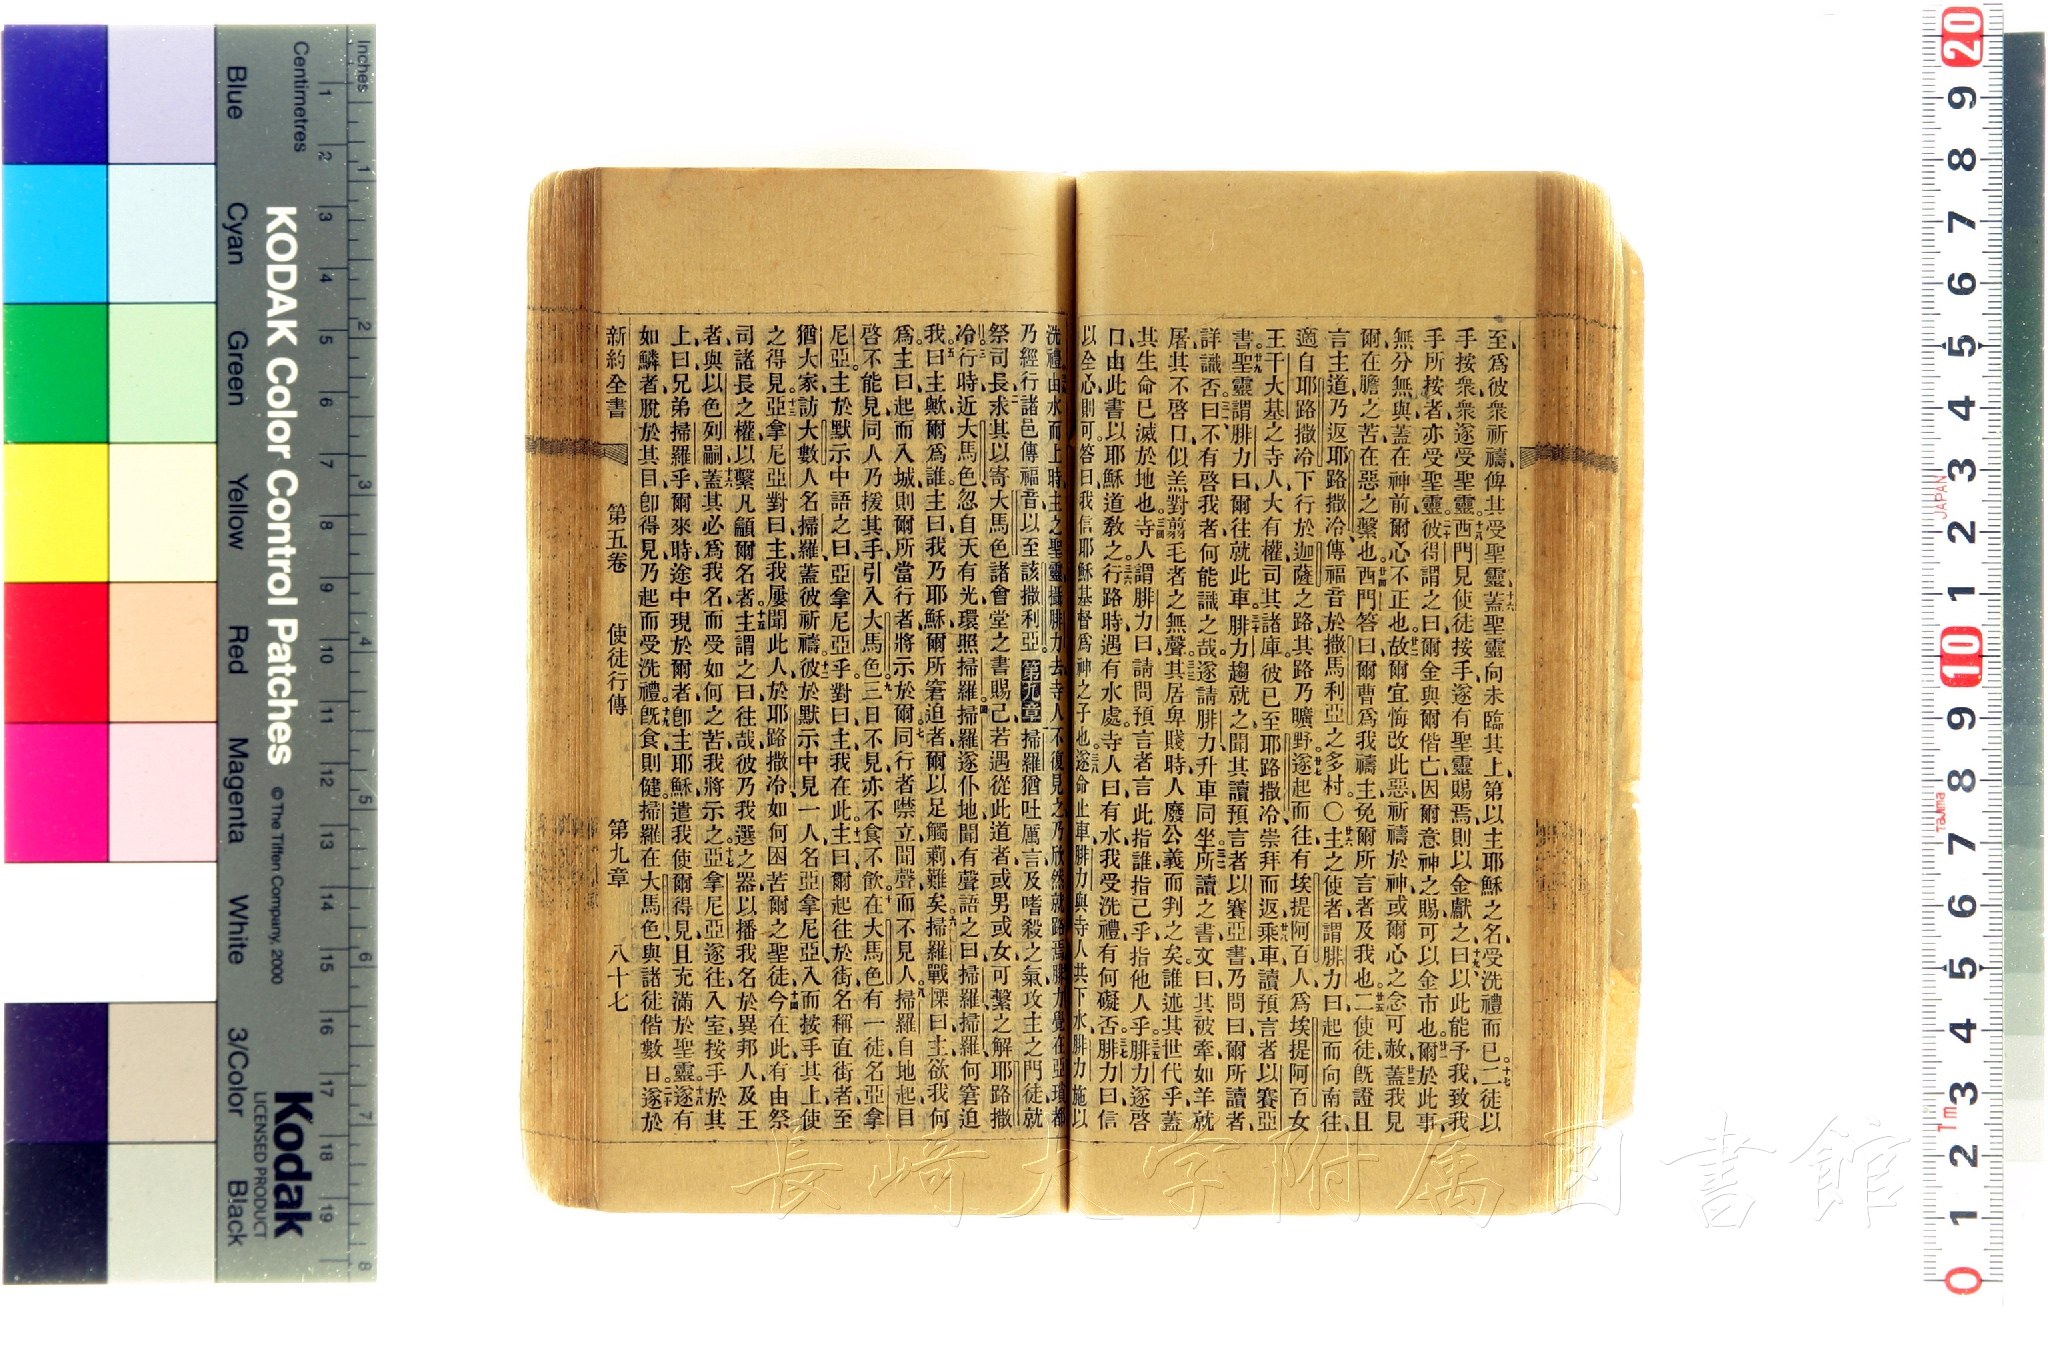 至爲彼衆祈禱俾其受聖靈蓋聖靈向未臨其上第以主耶穌之名受洗禮而已二徒以
手按衆衆遂受聖靈西門見使徒按手遂有聖靈賜焉則以金獻之曰以此能予我致我
手所按者亦受聖靈彼得謂之曰爾金與爾偕亡因爾意神之賜可以金市也爾於此事
無分無與蓋在神前爾心不正也故爾宜悔改此惡祈禱於神或爾心之念可赦蓋我見
爾在膽之苦在惡之繫也西門答曰爾曹爲我禱主免爾所言者及我也二使徒旣證且
言主道乃返耶路撒冷傳福音於撒馬利亞之多村〇主之使者謂腓力曰起而向南往
適自耶路撒冷下行於迦薩之路其路乃曠野遂起而往有埃提阿百人爲埃提阿百女
王干大基之寺人大有權司其諸庫彼已至耶路撒冷崇拜而返乘車讀預言者以賽亞
書聖靈謂腓力曰爾往就此車腓力趨就之聞其讀預言者以賽亞書乃問曰爾所讀者
詳識否曰不有啓我者何能識之哉遂請腓力升車同坐所讀之書文曰其被牽如羊就
屠其不啓口似羔對翦毛者之無聲其居卑賤時人廢公義而判之矣誰述其世代乎蓋
其生命已滅於地也寺人謂腓力曰請問預言者言此指誰指己乎指他人乎腓力遂啓
口由此書以耶穌道敎之行路時遇有水處寺人曰有水我受洗禮有何礙否腓力曰信
以全心則可答曰我信耶穌基督爲神之子也遂命止車腓力與寺人共下水腓力施以
洗禮由水而上時主之聖靈攝腓力去寺人不復見之乃欣然就路焉腓力覺在亞瑣都
乃經行諸邑傳福音以至該撒利亞 第九章 掃羅猶吐厲言及嗜殺之氣攻主之門徒就
祭司長求其以寄大馬色諸會堂之書賜己若遇從此道者或男或女可繫之解耶路撒
冷行時近大馬色忽自天有光環照掃羅掃羅遂仆地聞有聲語之曰掃羅掃羅何窘迫
我曰主歟爾爲誰主曰我乃耶穌爾所窘迫者爾以足觸莿難矣掃羅戰慄曰主欲我何
爲主曰起而入城則爾所當行者將示於爾同行者噤立聞聲而不見人掃羅自地起目
啓不能見同人乃援其手引入大馬色三日不見亦不食不飮在大馬色有一徒名亞拿
尼亞主於默示中語之曰亞拿尼亞乎對曰主我在此主曰爾起往於街名稱直街者至
猶大家訪大數人名掃羅蓋彼祈禱彼於默示中見一人名亞拿尼亞入而按手其上使
之得見亞拿尼亞對曰主我屢聞此人於耶路撒冷如何困苦爾之聖徒今在此有由祭
司諸長之權以繫凡籲爾名者主謂之曰往哉彼乃我選之器以播我名於異邦人及王
者與以色列嗣蓋其必爲我名而受如何之苦我將示之亞拿尼亞遂往入室按手於其
上曰兄弟掃羅乎爾來時途中現於爾者卽主耶穌遣我使爾得見且充滿於聖靈遂有
如鱗者脫於其目卽得見乃起而受洗禮旣食則健掃羅在大馬色與諸徒偕數日遂於
新約全書 第五卷 使徒行傳 第九章 八十七
Inches
Centimetres
KODAK Color Control Patches
© The Tiffen Company, 2000
Kodak
LICENSED PRODUCT
Blue
Cyan
Green
Yellow
Red
Magenta
White
3/Color
Black
JAPAN
Tajima
長崎大学附属図書館